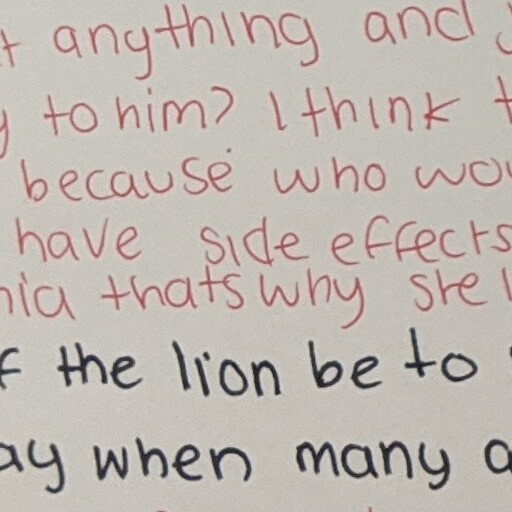 anything and
to him? I think
because who
have side effects
thats why
the lion be to
when many a